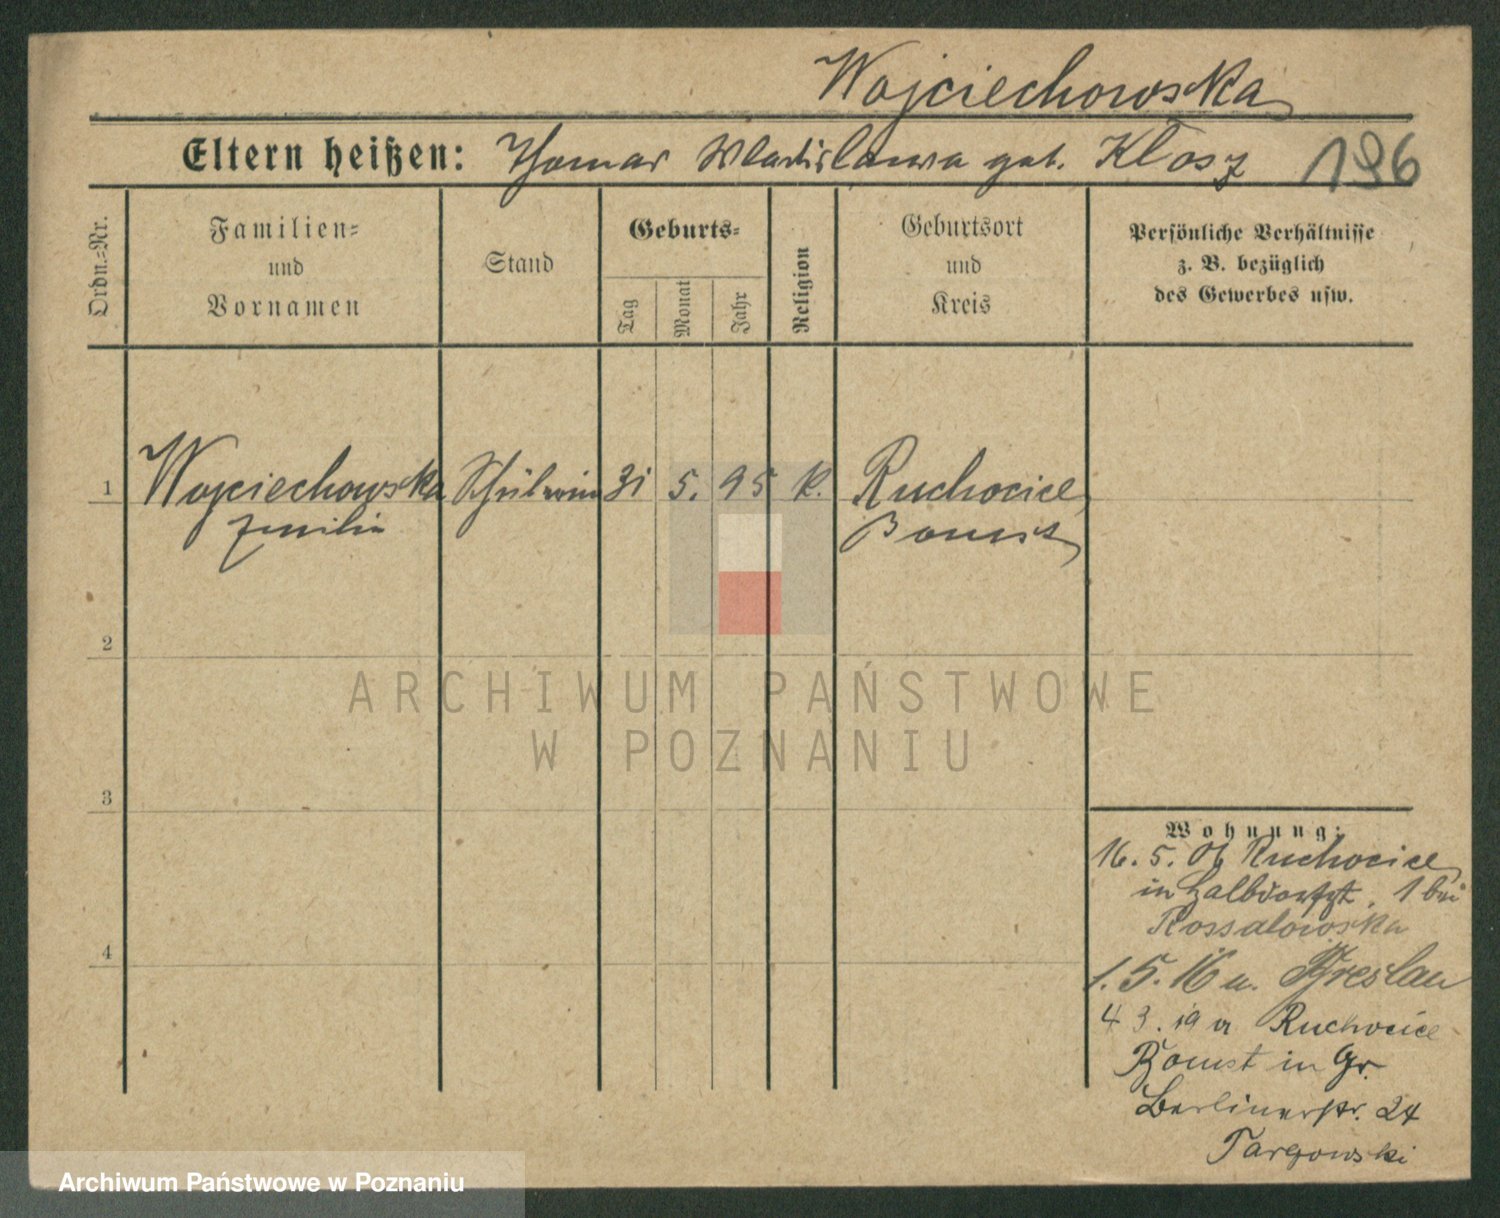 Wojciechowska
Eltern heißen: Thomas Wladislawa geb. Klosz 196
Ordn.-Nr.
Familien-
und
Vornamen
Stand
Geburts-
Tag
Monat
Jahr
Religion
Geburtsort
und
Kreis
Persönliche Verhältnisse
z. B. bezüglich
des Gewerbes usw.
1 Wojciechowska Schülerin 31 5. 95 k. Ruchocice
Emilie Bomst
2
3
4
Wohnung:
16. 5. 06 Ruchocice
in Halbdorfstr. 1 bei
Rossalowska
1. 5. 16 u. Breslau
4 3. 19 a Ruchocice
Bomst in Gr.
Berlinerstr. 24
Targowski
ARCHIWUM PAŃSTWOWE
W POZNANIU
Archiwum Państwowe w Poznaniu